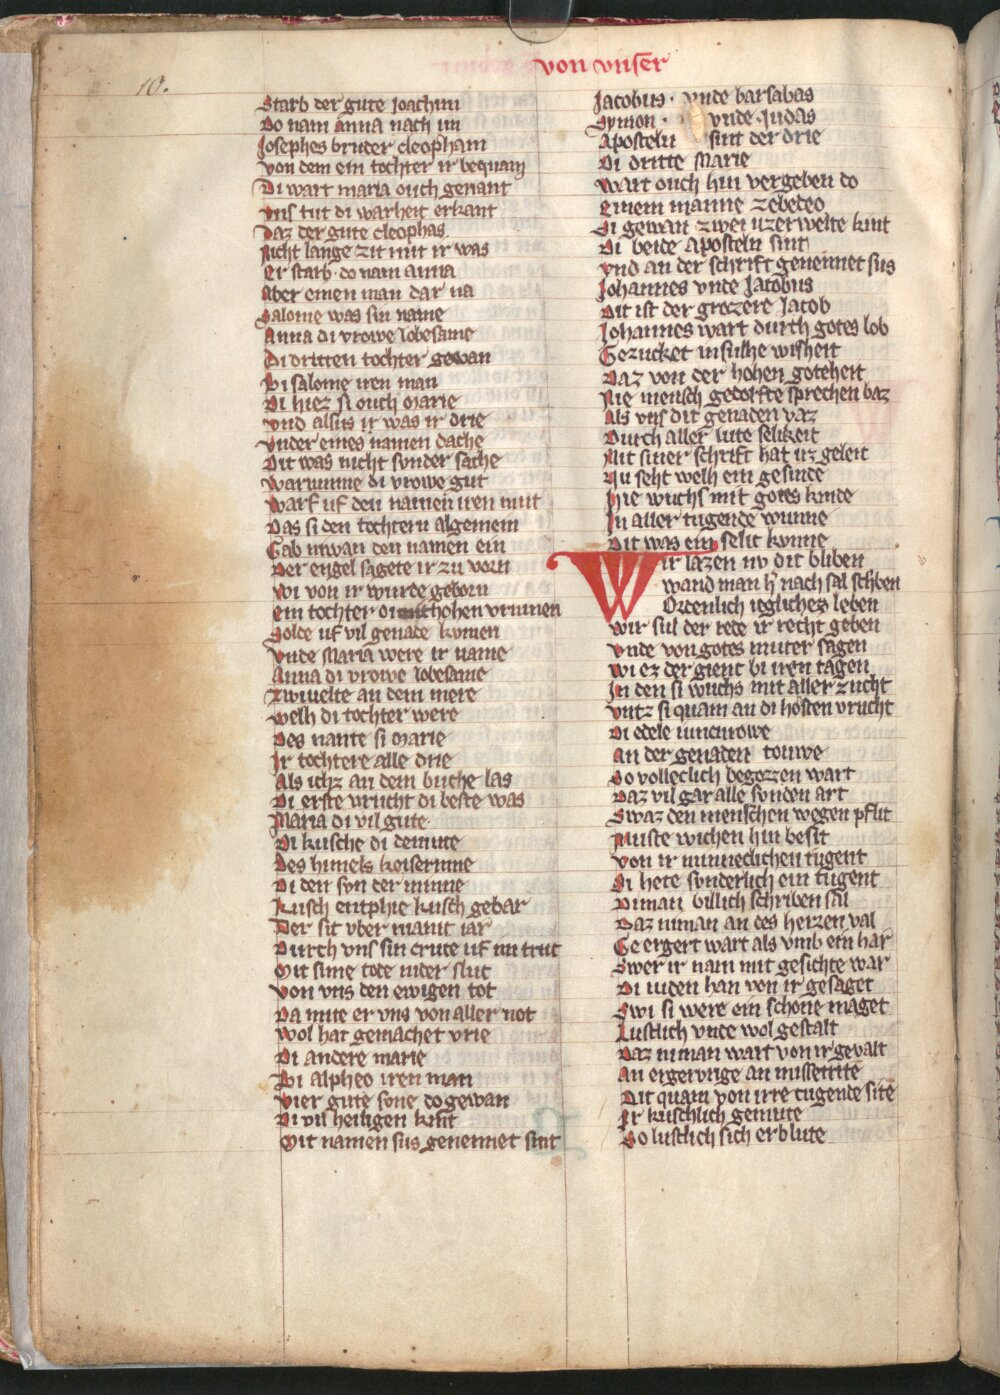 von vnser
10.
Starb der gute Joachim
Do nam anna nach im
Josephes bruder cleopham
Von dem ein tochter ir bequam
Di wart maria ouch genant
Vns tut di warheit erkant
Daz der gute cleophas
Nicht lange zit mit ir was
Er starb do nam anna
Aber einen man dar na
Salome was sin name
Anna di vrowe lobesame
Di dritten tochter gewan
Bi salome iren man
Di hiez si ouch Marie
Vnd alsus ir was ir drie
Vnder eines namen dache
Dit was nicht sunder sache
Warumme di vrowe gut
Warf uf den namen iren mut
Das si den tochtern algemein
Gab niwan den namen ein
Der engel sagete ir zu vorn
Wi von ir wurde geborn
Ein tochter hohen vrumen
Solde uf vil genade kumen
Vnde Maria were ir name
Anna di vrowe lobesame
Zwiuelte an dem mere
Welh di tochter were
Des nante si Marie
Ir tochtere alle drie
Als ichz an dem buche las
Di erste vrucht di beste was
Maria di vil gute
Di kusche di demute
Des himels keiserinne
Di den syn der minne
Kusch entphie kusch gebar
Der sit vber manic iar
Durch vns sin cruce uf im truc
Mit sime tode nider sluc
Von vns den ewigen tot
Da mite er vns von aller not
Wol hat gemachet vrie
Di andere marie
Bi alpheo iren man
Vier gute sone do gewan
Di vil heiligen kint
Mit namen sus genennet sint
Jacobus · vnde barsabas
Symon · vnde · Judas
Aposteln sint der drie
Di dritte Marie
Wart ouch hin vergeben do
Einem manne zebedeo
Si gewan zwei uzerwelte kint
Di beide Aposteln sint
Vnd an der schrift genennet sus
Johannes vnde Jacobus
Dit ist der grozere Jacob
Johannes wart durch gotes lob
Gezucket in sulhe wisheit
Daz von der hohen goteheit
Nie mensch gedorfte sprechen baz
Als vns dit genaden vaz
Durch aller lute selikeit
Mit siner schrift hat uz geleit
Nu seht welh ein gesinde
Hie wuchs mit gotes kinde
In aller tugende wunne
Dit was ein selic kunne
Wir lazen nv dit bliben
Wand man h' nach sal sch'iben
Ordenlich iegliches leben
Wir sul der rede ir recht geben
Vnde von gotes muter sagen
Wi ez der gienc bi iren tagen
In den si wuchs mit aller zucht
Vntz si quam an di hosten vrucht
Di edele iuncurowe
An der genaden touwe
So volleclich begozzen wart
Daz vil gar alle sunden art
Swaz den menschen wegen pflit
Muste wichen hin besit
Von ir minneclichen tugent
Si hete sunderlich ein tugent
Di man billich schriben sal
Daz niman an des herzen val
Geergert wart als vmb ein har
Swer ir nam mit gesichte war
Di iuden han von ir gesaget
Swi si were ein schone maget
Lustlich vnde wol gestalt
Daz niman wart von ir gevalt
An ergerunge an missetrite
Dit quam von irre tugende site
Ir kuschlich gemute
So lustlich sich erblute